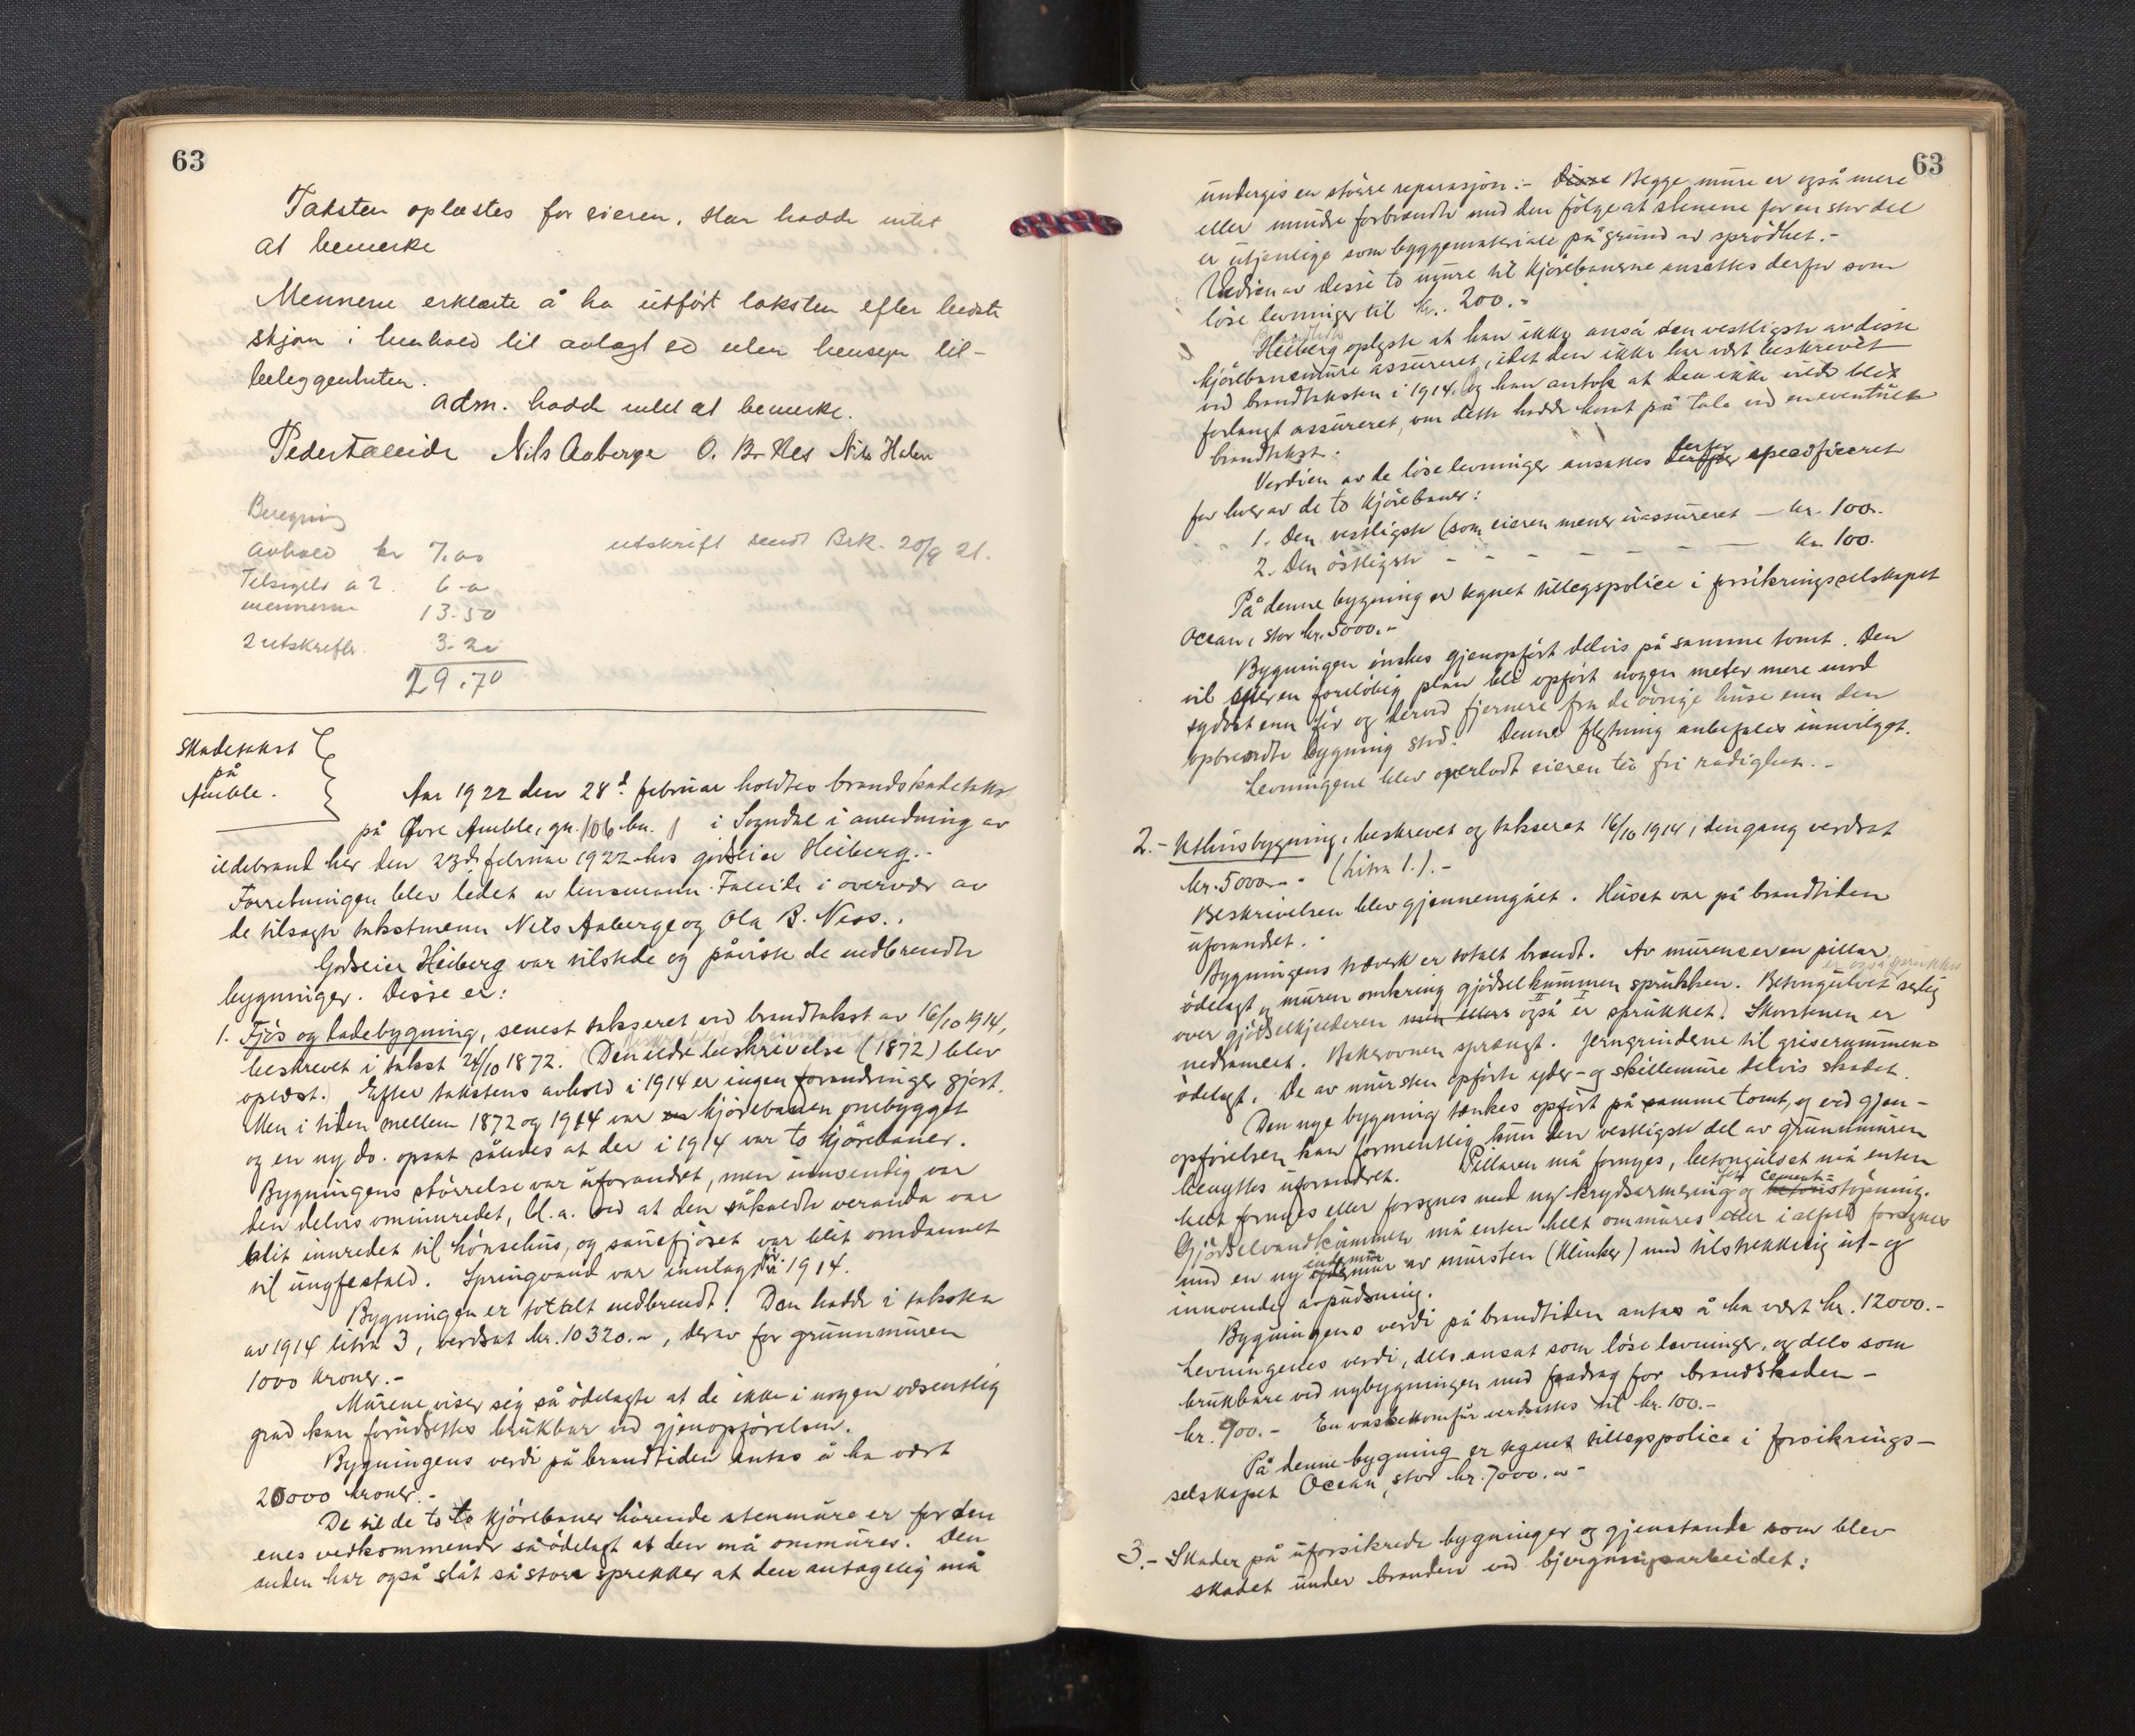 63
Taksten oplæstes for eieren. Han hadde intet
at bemerke
Mennene erklærte å ha utført taksten efter bedste
skjøn i henhold til avlagt ed uten hensyn til-
beleggenheten.
Adm. hadde intet at bemerke.
Peder Falleide Nils Aaberge O. B. Nes Nils Halen
Beregning
Avhold kr 7.00
utskrift sendt Brk. 20/9 21.
Tilsigels à 2. 6.00
mennene 13.50
2 utskrefter. 3.20
29.70
Skadetakst
på
Amble.
Aar 1922 den 28d februar holdtes brandskadetakst
på Øvre Amble, gn. 106 bn. 1 i Sogndal i anledning av
ildebrand her den 23de februar 1922 hos godseier Heiberg.-
Forretningen blev ledet av lensmann Falleide i overvær av
de tilsagte takstmenn Nils Aaberge og Ola B. Ness.
Godseier Heiberg var tilstede og påviste de nedbrendte
bygninger. Disse er:
1. Fjøs og ladebygning, senest taksert ved brandtakst av 16/10 1914,
beskrevet i takst 24/10 1872. Den eldre beskrivelse (1872) blev
oplæst. Efter takstens avhold i 1914 er ingen forandringer gjort.
Men i tiden mellem 1872 og 1914 var en kjørebanen ombygget
og en ny do. opsat således at der i 1914 var to kjørebaner.
Bygningens størrelse var uforandret, men innvendig var
den delvis ominnredet, bl.a. ved at den såkaldte veranda var
blit innredet til hønsehus, og sauefjøset var blit omdannet
til ungfestald. Springvand var inntagt før 1914.
Bygningen er totalt nedbrendt. Den hadde i taksten
av 1914 litra 3, verdsat kr. 10320.-, derav for grunnmuren
1000 kroner.-
Murene viser sig så ødelagte at de ikke i nogen væsentlig
grad kan forudsettes brukbar ved gjenopførelsen.
Bygningens verdi på brandtiden antas å ha vært
20000 kroner.-
De til de to to kjørebaner hørende stenmure er for den
enes vedkommende så ødelagt at den må ommures. Den
anden har også slåt så store sprekker at den antagelig må
63
undergis en større reparasjon.- Disse Begge mure er også mere
eller mindre forbrændte med den følge at stenene for en stor del
er utjenlige som byggemateriale på grund av sprødhet.-
Verdien av disse to mure til kjørebanerne ansettes derfor som
løse levninger til kr. 200.-
Heiberg oplyste at han ikke anså den vestligste av disse
kjørebanemure assureret, idet den ikke har vært beskrevet
ved brandtaksten i 1914. Og han antok at den ikke vilde blit
forlangt assureret, om dette hadde komt på tale ved en eventuel
brandtakst.
Verdien av de løse levninger ansattes derfor derfor specificeret
for hver av de to kjørebaner:
1. Den vestligste (som eieren mener uassureret — kr. 100.
2. Den østligste - - - - - — kr. 100.
På denne bygning er tegnet tillegspolice i forsikringsselskapet
Ocean, stor kr. 5000.-
Bygningen ønskes gjenopført delvis på samme tomt. Den
vil efter en foreløbig plan bli opført nogen meter mere mod
sydøst enn før og derved fjernere fra de øvrige huse enn den
opbrendte bygning stod. Denne flytning anbefales innvilget.
Levningene blev overlodt eieren til fri rådighet.-
2.- Uthusbygning, beskrevet og takseret 16/10 1914, dengang verdsat
kr. 5000.-. (Litra 1.).-
Beskrivelsen blev gjennemgået. Huset var på brandtiden
uforandret.
Bygningens treverk er totalt brendt. Av murene er en pillar
ødelagt, muren omkring gjødselkummen sprukken. Betongulvet
over gjødselkjelderen også er sprukket. Skorstenen er
nedramlet. Bakerovnen sprængt. Jerngrindene til griserummene
ødelagt. De av mursten opførte yder- og skillemure delvis skadet.
Den nye bygning tænkes opført på samme tomt, og ved gjen-
opførelsen kan formentlig kun den vestligste del av grunnmuren
benyttes uforandret. Pillaren må fornyes, betongulvet må enten
helt fornyes eller forsynes med ny krydsarmering og cement- støpning.
Gjødselvandkummen må enten helt ommures eller i alfald forsynes
med en ny indermur ydermur av mursten (klinker) med tilstrekkelig ut- og
innvendig avpudsning.
Bygningens verdi på brandtiden antas å ha vært kr. 12000.-
Levningenes verdi, dels ansat som løse levninger, og dels som
brukbare ved nybygningen med fradrag for brandskaden -
kr. 900.- En vaskekomfur verdsettes til kr. 100.-
På denne bygning er tegnet tillegspolice i forsikrings-
selskapet Ocean, stor kr. 7000.-
3.- Skader på uforsikrede bygninger og gjenstande som blev
skadet under branden ved bjergningsarbeidet: